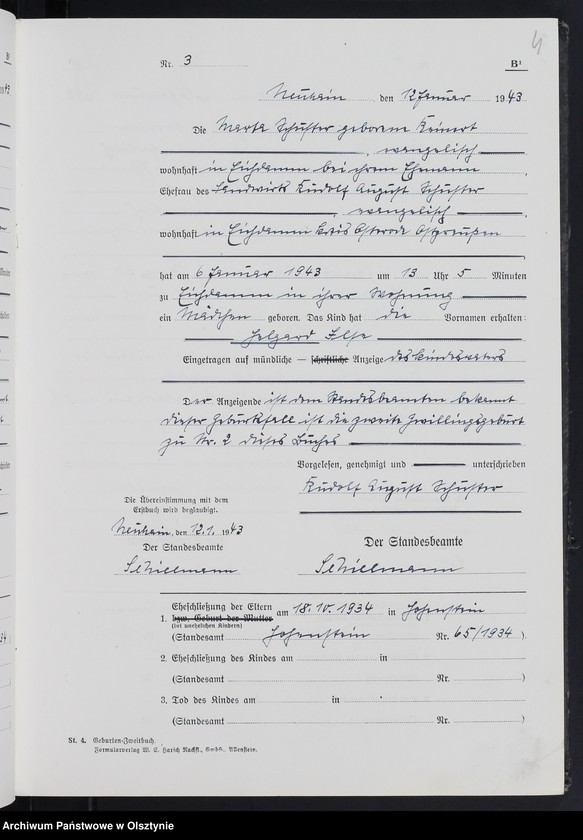 4
Nr. 3
B¹
Neuhain, den 12. Januar 1943
Die Marta Schuster geborene Reinert
, evangelisch
wohnhaft in Eichdamm bei ihrem Ehemann,
Ehefrau des Landwirts Rudolf August Schuster
, evangelisch,
wohnhaft in Eichdamm Kreis Osterode Ostpreußen
hat am 6. Januar 1943 um 13 Uhr 5 Minuten
zu Eichdamm in ihrer Wohnung
ein Mädchen geboren. Das Kind hat die Vornamen erhalten:
Helgard Ilse
Eingetragen auf mündliche — schriftliche Anzeige des Kindesvaters
Der Anzeigende ist dem Standesbeamten bekannt
dieser Geburtsfall ist die zweite Zwillingsgeburt
zu Nr. 2 dieses Buches
Vorgelesen, genehmigt und unterschrieben
Rudolf August Schuster
Die Übereinstimmung mit dem
Erstbuch wird beglaubigt.
Neuhain, den 12.1. 1943
Der Standesbeamte
Der Standesbeamte
1. Eheschließung der Eltern am 18.10.1934 in Hohenstein
bzw. Geburt der Mutter
(bei unehelichen Kindern)
(Standesamt Hohenstein Nr. 65/1934)
2. Eheschließung des Kindes am in
(Standesamt Nr. )
3. Tod des Kindes am in
(Standesamt Nr. )
St. 4. Geburten-Zweitbuch.
Formularverlag W. E. Harich Nachfl., GmbH., Allenstein.
Archiwum Państwowe w Olsztynie